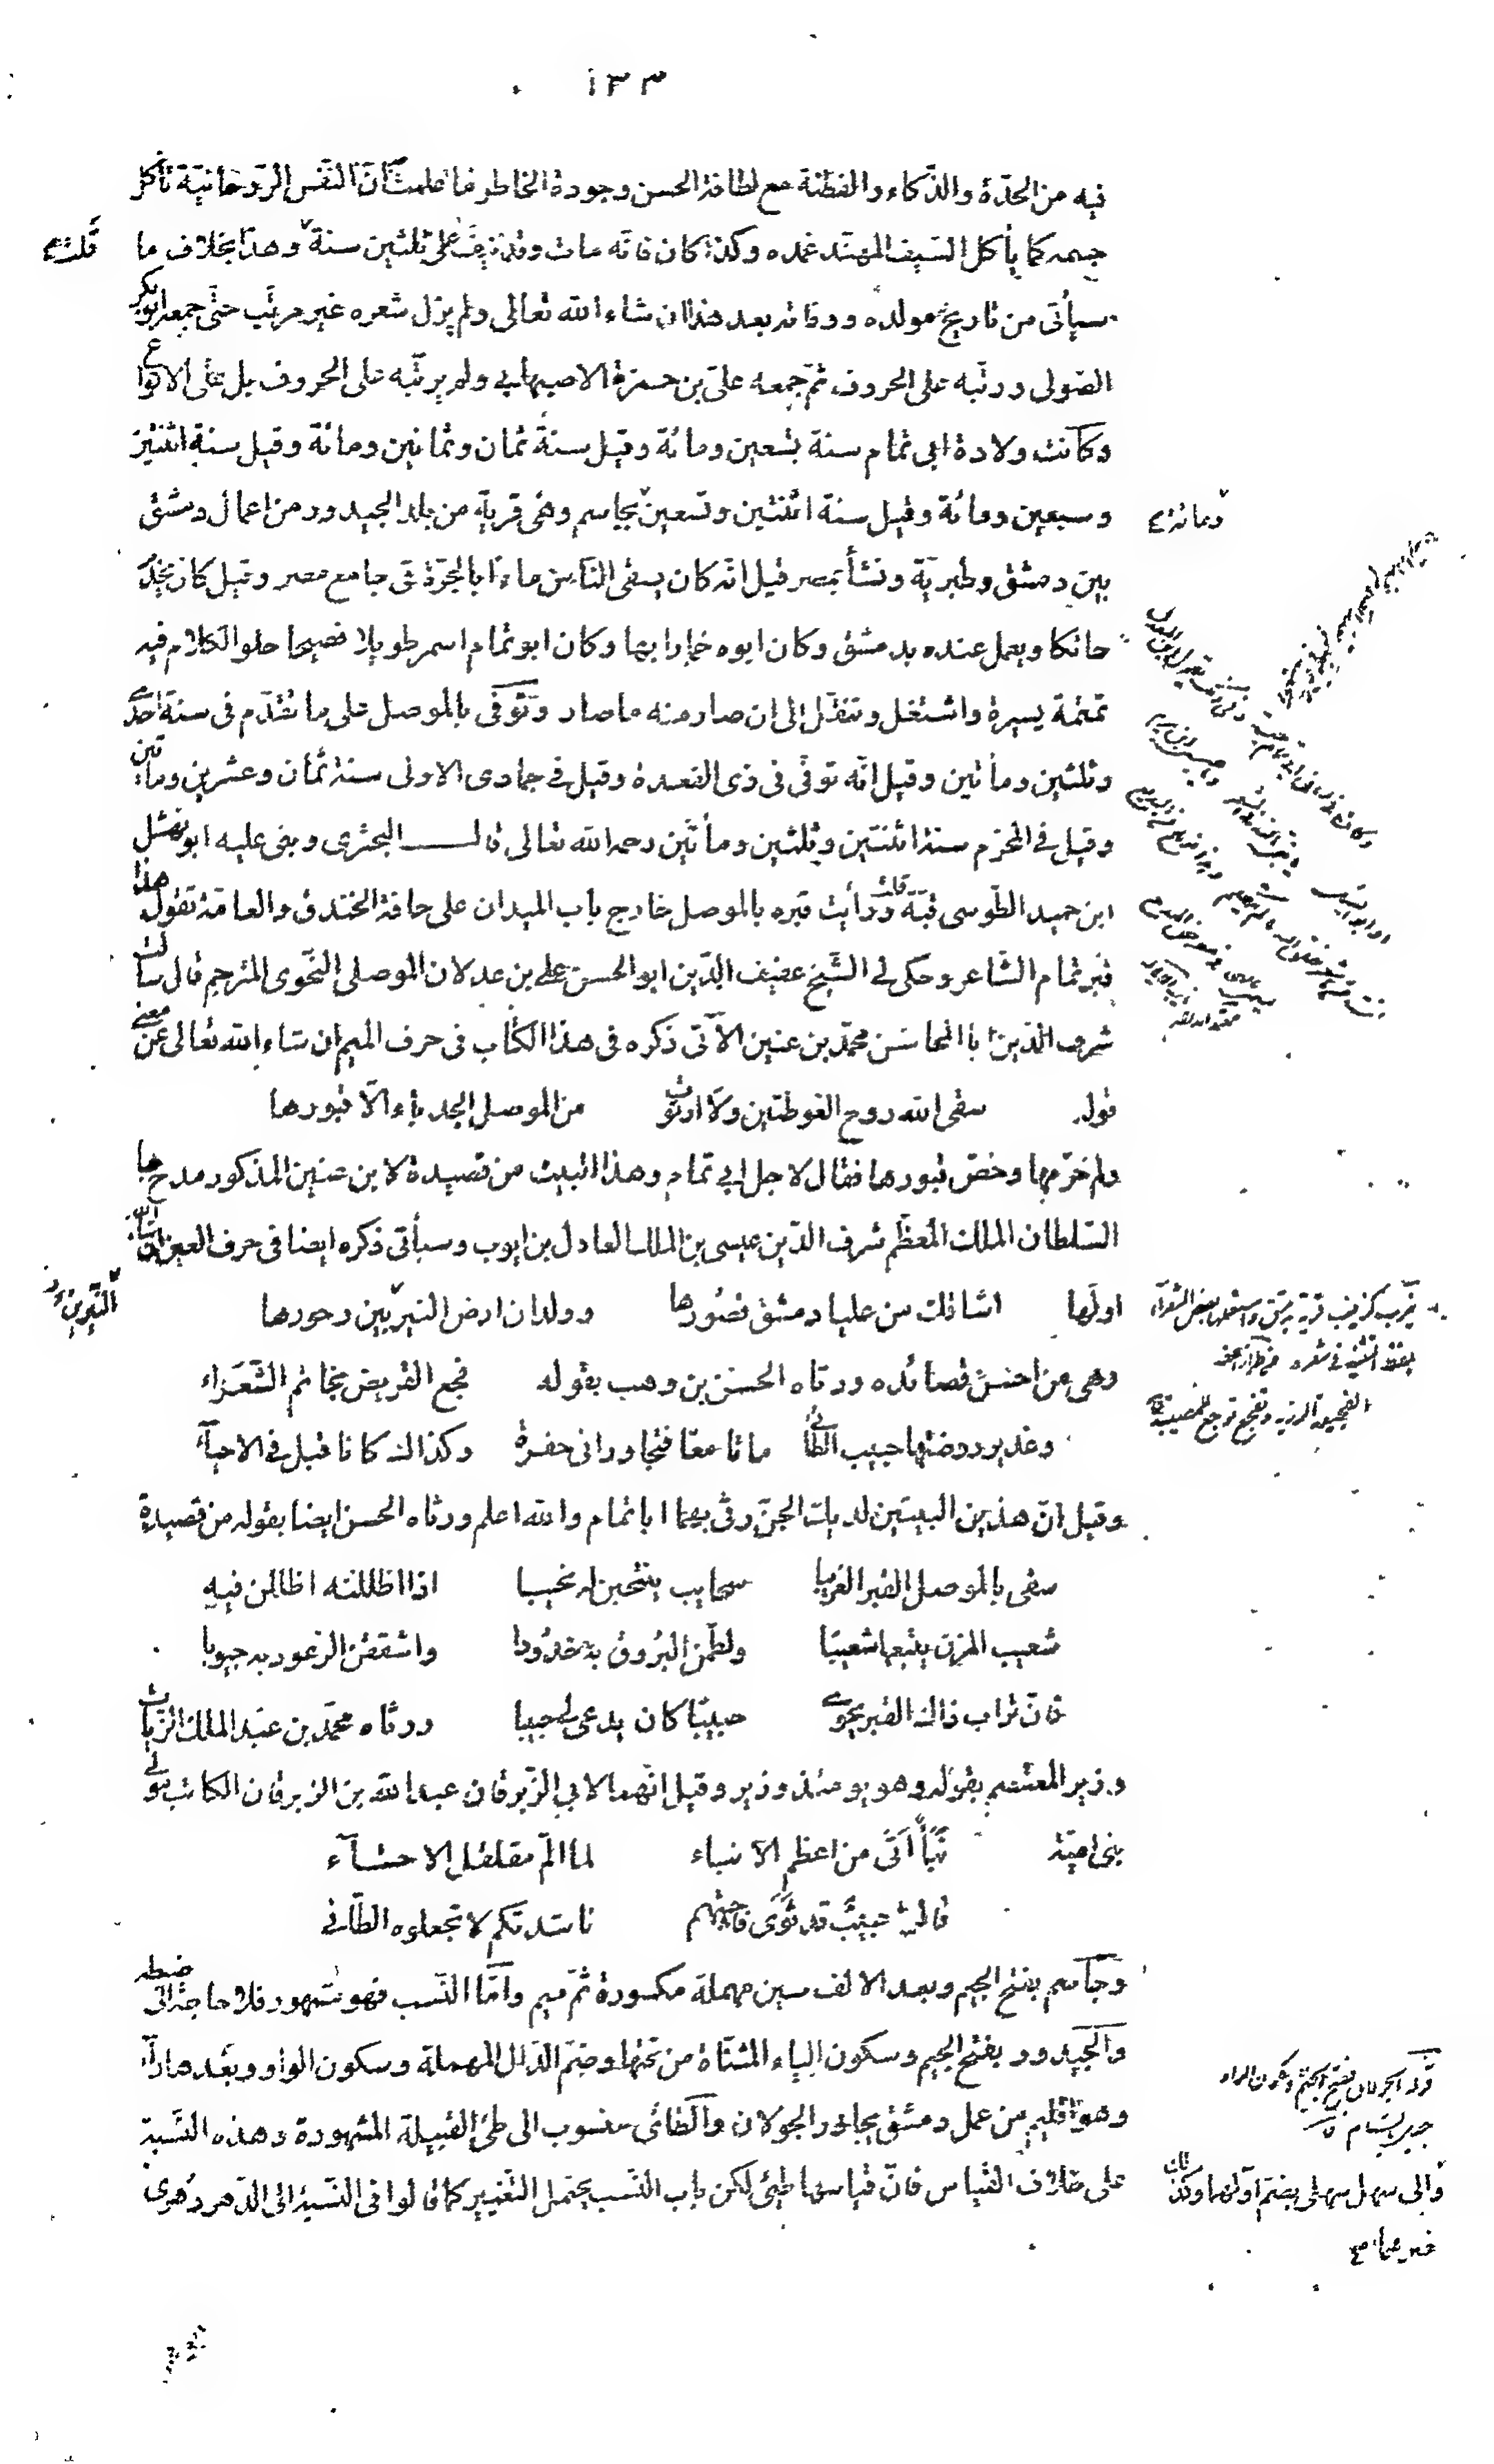 ١٣٣
فيه من الحدّة والذّكاء والفطنة مع لطافة الحسن وجودة الخاطر فما علمت أنّ النّفس الرّوحانيّة تأكل
جسمه كما يأكل السّيف المهنّد غمده وكذا كان فانّه مات وقد نيّف على ثلثين سنة وهذا بخلاف ما
قلت
سيأتى من تاريخ مولده ووفاته بعد هذا ان شاء الله تعالى ولم يزل شعره غير مرتّب حتّى جمعه ابو بكر
الصّولى ورتّبه على الحروف ثمّ جمعه علىّ بن حمزة الاصبهانى ولم يرتّبه على الحروف بل على الانواع
وكانت ولادة ابى تمام سنة تسعين ومائة وقيل سنة ثمان وثمانين ومائة وقيل سنة اثنتين
وسبعين ومائة وقيل سنة اثنتين وتسعين بجاسم وهى قرية من بلد الجيدور من اعمال دمشق
ومائة
بين دمشق وطبريّة ونشأ بمصر قيل انّه كان يسقى النّاس ماءًا بالجرّة فى جامع مصر وقيل كان يخدم
حائكا ويعمل عنده بدمشق وكان ابوه خمارا بها وكان ابو تمام اسمر طويلا فصيحا حلو الكلام فيه
تمتمة يسيرة واشتغل وتنقّل الى ان صار منه ما صار وتوفّى بالموصل على ما تقدّم فى سنة احدى
وثلثين ومأتين وقيل انّه توفّى فى ذى القعدة وقيل فى جمادى الاولى سنة ثمان وعشرين ومأتين
وقيل فى المحرّم سنة اثنتين وثلثين ومأتين رحمه الله تعالى قال البحترى وبنى عليه ابو نهشل
ابن حميد الطّوسى قبّة قلت ورأيت قبره بالموصل خارج باب الميدان على حافة الخندق والعامّة تقول هذا
قبر تمام الشّاعر وحكى لى الشّيخ عفيف الدّين ابو الحسن على بن عدلان الموصلى النّحوى المترجم قال سألت
شرف الدّين ابا المحاسن محمّد بن عنين الآتى ذكره فى هذا الكتاب فى حرف الميم ان شاء الله تعالى عن معنى
قوله سقى الله دوح الغوطتين ولا ارتوى من الموصل الجدباء الّا قبورها
ولم حرّمها وخصّ قبورها فقال لاجل ابى تمام وهذا البيت من قصيدة لابن عنين المذكور مدح بها
السّلطان الملك المعظّم شرف الدّين عيسى بن الملك العادل بن ايوب وسيأتى ذكره ايضا فى حرف العين ان شاء الله
اولها اشاقك من عليا دمشق قصورها وولدان ارض النيربين وحورها
وهى من احسن قصائده ورثاه الحسن بن وهب بقوله فجع القريض بخاتم الشّعراء
وغدير روضتها حبيب الطّائى ماتا معا فتجاورا فى حفرة وكذاك كانا قبل فى الاحيآء
وقيل انّ هذين البيتين لديك الجنّ رثى بهما ابا تمام والله اعلم ورثاه الحسن ايضا بقوله من قصيدة
سقى بالموصل القبر الغريبا سحايب ينتحبن له نحيبا اذا اظللنه اظللن فيه
شعيب المزن يتبعها شعيبا ولطّمن البروق به خدودا واشققن الرّعود به جيوبا
فانّ تراب ذاك القبر يحوى حبيبًا كان يدعى لى حبيبا ورثاه محمّد بن عبد الملك الزّيات
وزير المعتصم بقوله وهو يومئذ وزير وقيل انّهما لابى الزّبرقان عبد الله بن الزبرقان الكاتب مولى
بنى اميّة نبأ أتى من اعظم الانباء لما المّ مقلقل الاحشآء
قالوا حبيب قد ثوى فاجبتهم ناشدتكم لا تجعلوه الطّائى
وجاسم بفتح الجيم وبعد الالف سين مهملة مكسورة ثمّ ميم وامّا النّسب فهو مشهور فلا حاجة الى ضبطه
والجيدور بفتح الجيم وسكون الياء المثنّاة من تحتها وضمّ الدّال المهملة وسكون الواو وبعدها رآء
وهو اقليم من عمل دمشق يجاور الجولان والطّائى منسوب الى طىّ القبيلة المشهورة وهذه النّسبة
على خلاف القياس فانّ قياسها طيئى لكن باب النّسب يحتمل التّغيير كما قالوا فى النّسبة الى الدّهر دُهرى
والى سهل سهلى بضمّ اوّلهما وكذلك
قوله الجولان بفتح الجيم وسكون الواو
جبل بالشام